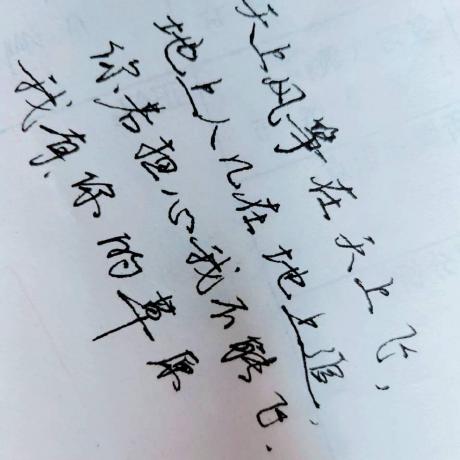 天上风筝在天上飞,
地上人儿在地上追,
你若担心我不能飞.
我有你的草原